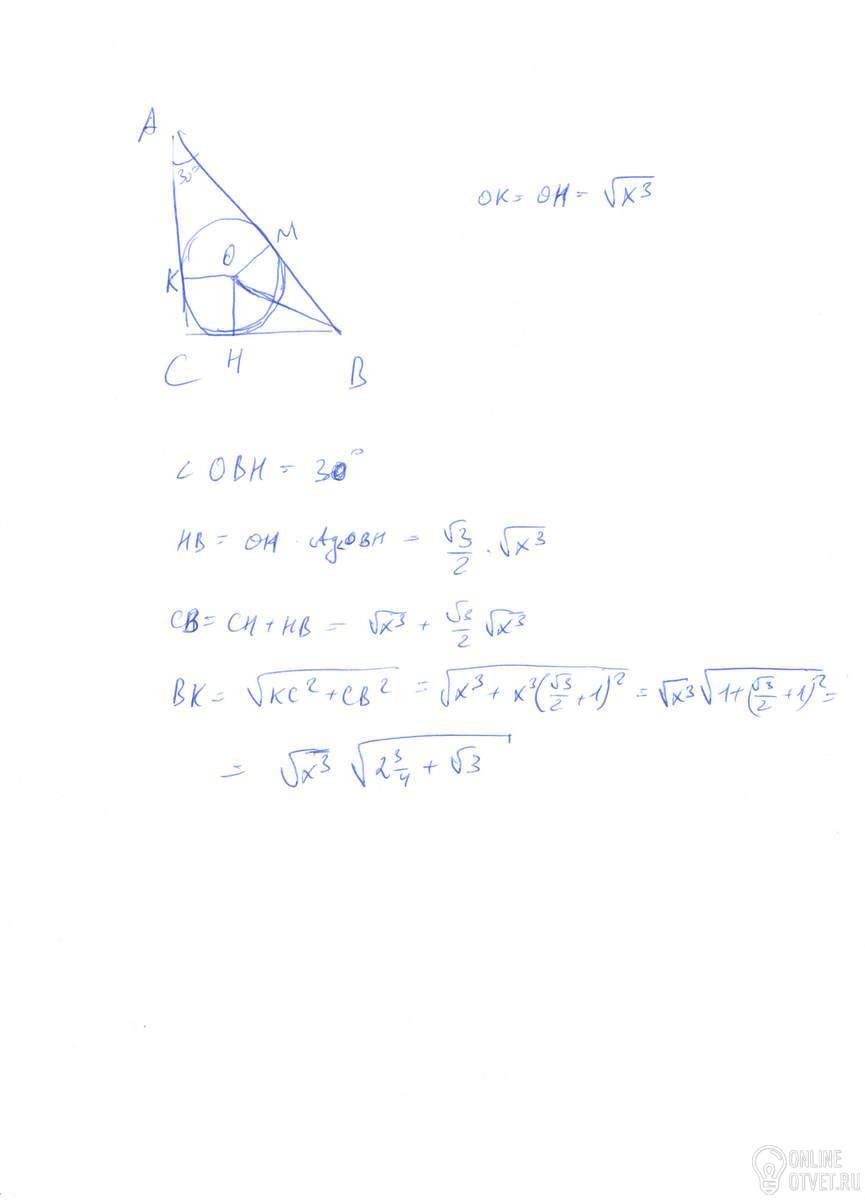 A
30°
OK = OH = √x³
M
O
K
C
H
B
∠ OBH = 30°
HB = OH · ∠OBH = √3/2 · √x³
CB = CH + HB = √x³ + √3/2 √x³
BK = √(KC² + CB²) = √(x³ + x³(√3/2 + 1)²) = √x³ √(1 + (√3/2 + 1)²) =
= √x³ √(2 3/4 + √3)
ONLINE
OTVET.RU